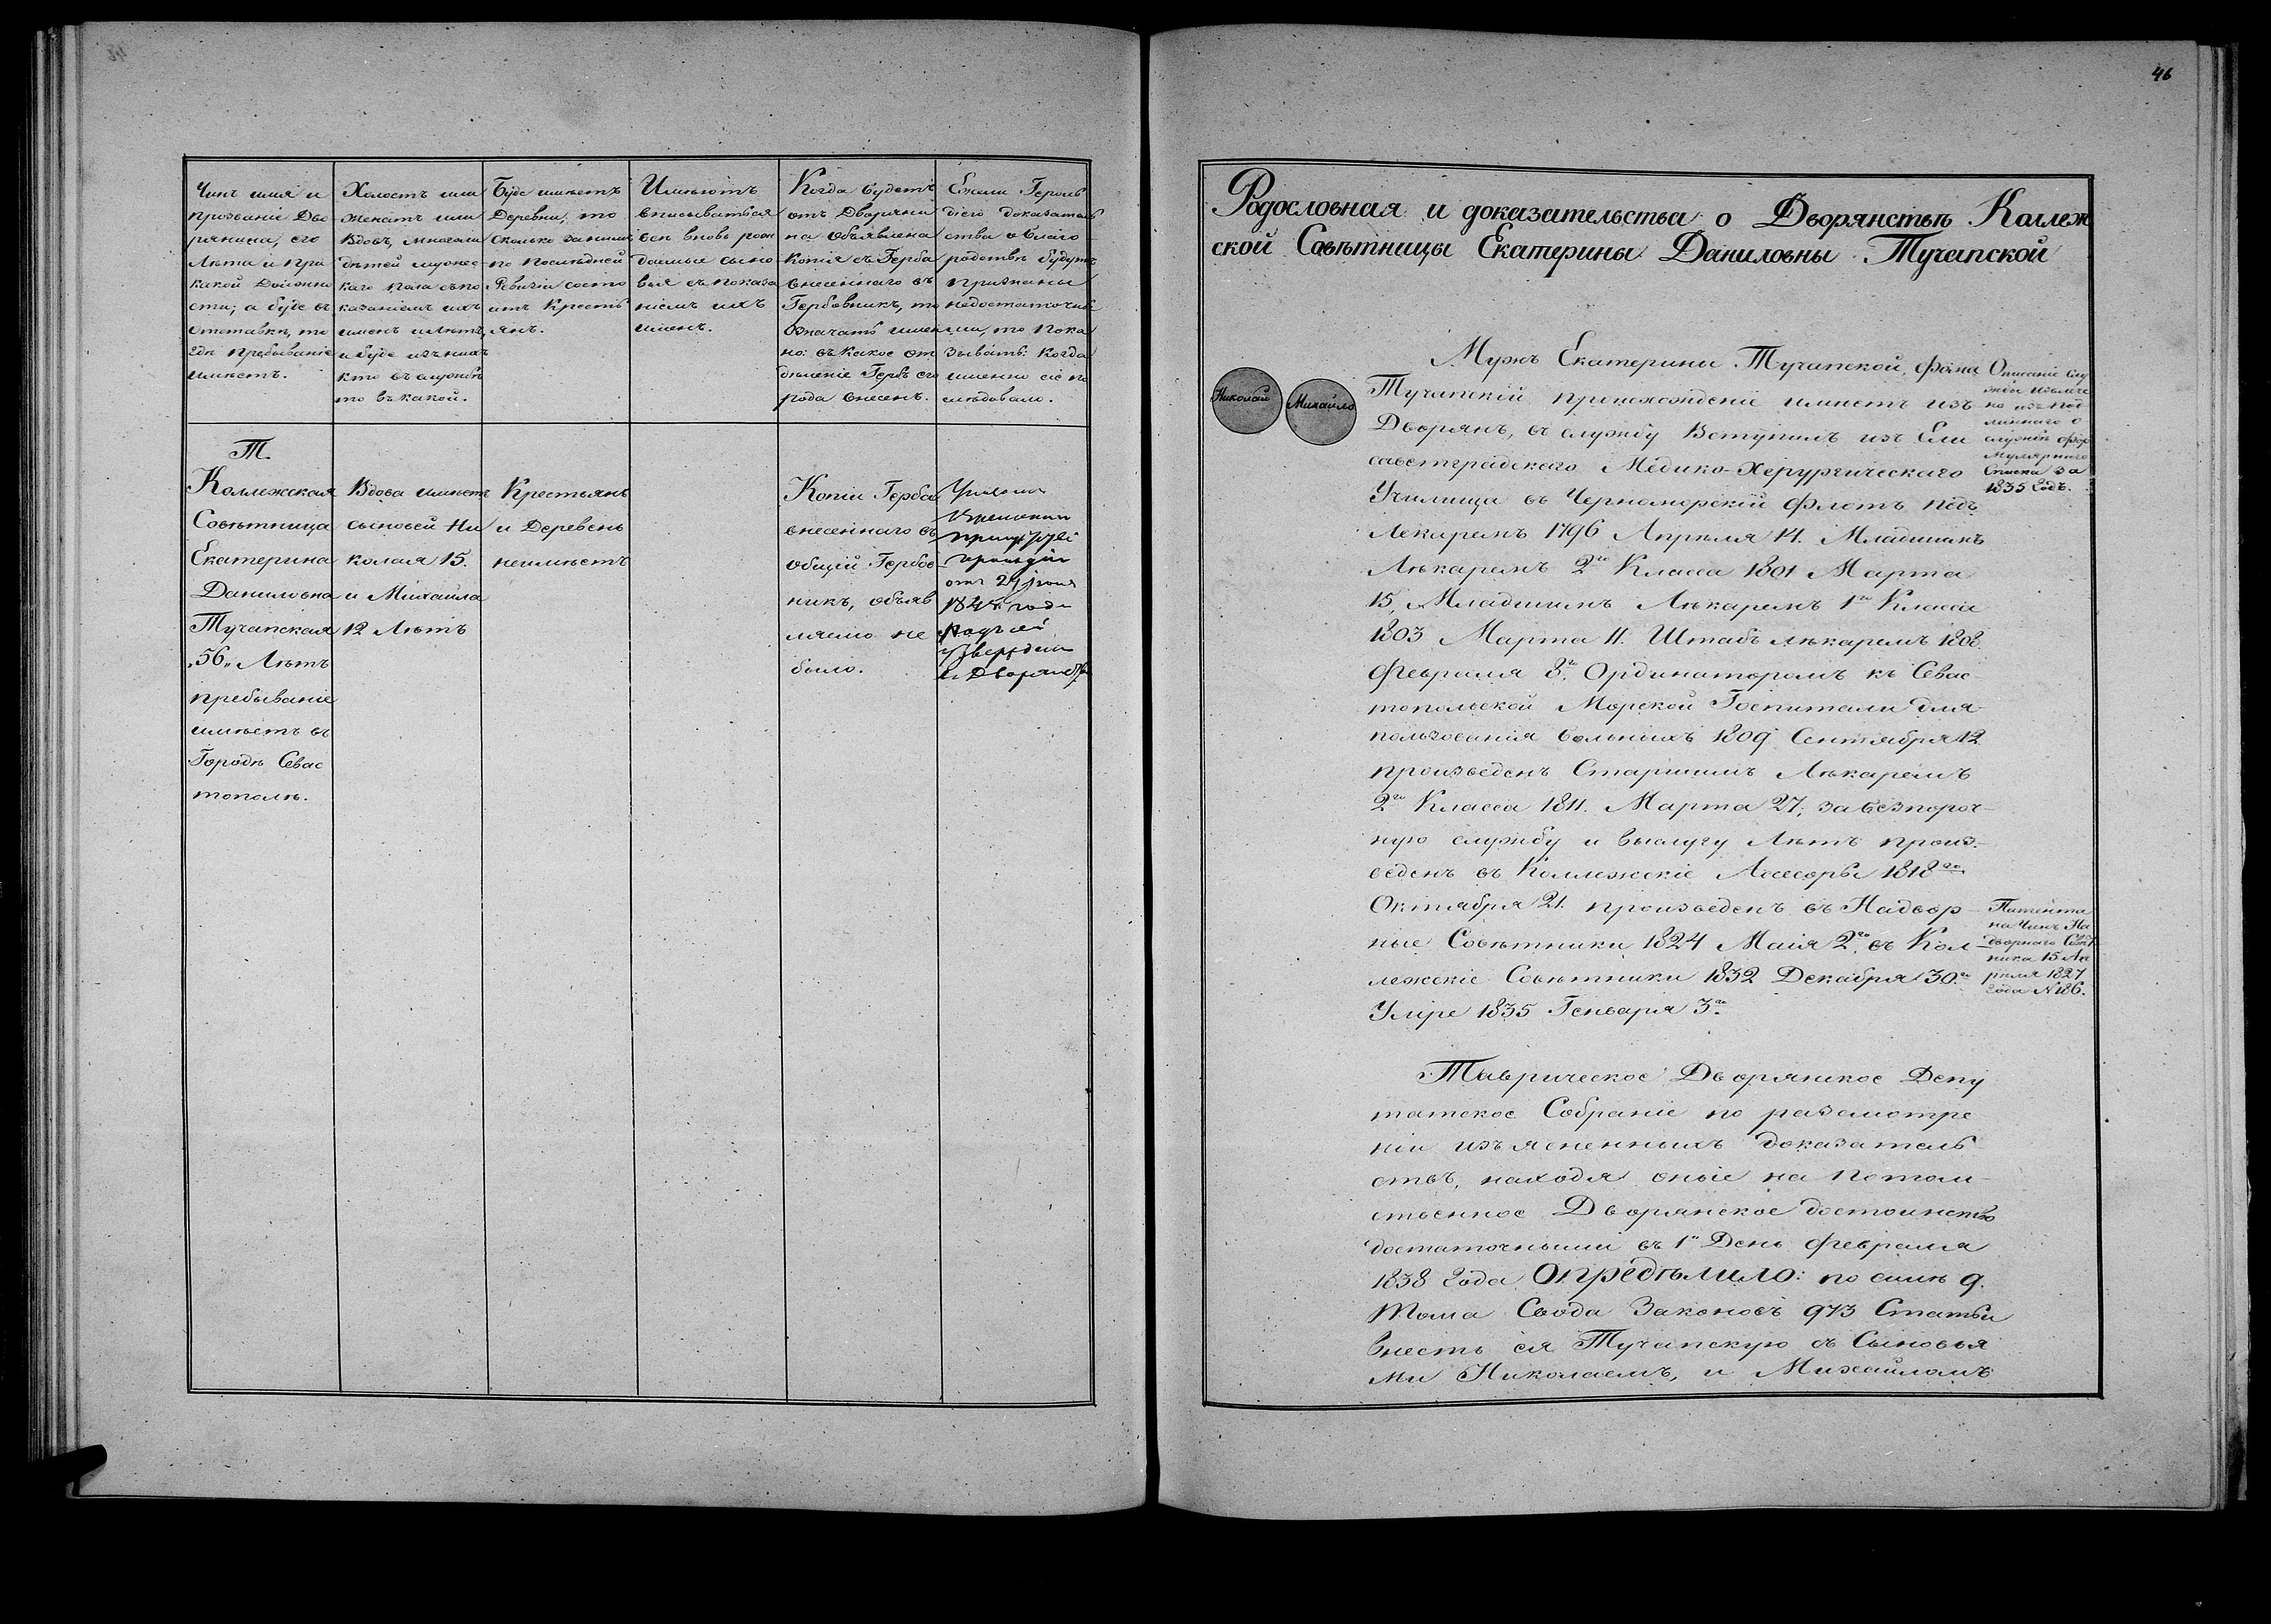 Чинъ имя и
прозваніе Дво
рянина, его
Лѣта и при
какой Должно
сти; а буде въ
Отставкѣ, то
гдѣ пребываніе
имѣетъ.
Холостъ или
женатъ или
Вдовъ, много ли
дѣтей мужес
каго пола съ по
казаніемъ ихъ
именъ и Лѣтъ,
и буде изъ нихъ
кто въ службѣ
то въ какой.
Буде имѣетъ
Деревни, то
сколько за ними
по последней
Ревизіи состо
итъ Крестъ
янъ.
Имѣютъ
вписываться
всѣ вновь рож
даемые сыно
вья съ показа
ніемъ ихъ
именъ.
Когда будетъ
отъ Дворяни
на объявлена
Копія съ Герба
внесеннаго въ
Гербовникъ, то
Означать имен
но: въ какое от
дѣленіе Гербъ его
рода внесенъ.
Ежели Героль
діею доказатель
ства о благо
родствѣ будутъ
признаны
недостаточны
ми, то пока
зывать: когда
именно сіе по
слѣдовало.
Т.
Коллежская
Совѣтница
Екатерина
Даниловна
Тучапская
„56„ Лѣтъ
пребываніе
имѣетъ въ
Городѣ Севас
тополѣ.
Вдова имѣетъ
сыновей Ни
колая 15.
и Михаила
12 Лѣтъ
Крестьянъ
и Деревень
неимѣетъ
Копіи Герба
внесеннаго въ
общій Гербов
никъ, объяв
ляемо не
было.
Указомъ
Герольдіи
отъ 27
года
въ Дворянст
46
Родословная и доказательства о Дворянствѣ Коллеж
ской Совѣтницы Екатерины Даниловны Тучапской
Николай
Михайло
Мужъ Екатерины Тучапской, Фома
Тучапскій происхожденіе имѣетъ изъ
Дворянъ, въ службу Вступилъ изъ Ели
саветградскаго Медико-Херургическаго
Училища въ Черноморскій флотъ подъ
Лекаремъ 1796 Апрѣля 14. Младшимъ
Лѣкаремъ 2го Класса 1801 Марта
15, Младшимъ Лѣкаремъ 1го Класса
1803 Марта 11. Штабъ лѣкаремъ 1808
Февраля 8го Ординаторомъ къ Севас
топольской Морской Госпитали для
пользованія больныхъ 1809 Сентября 12
произведенъ Старшимъ Лѣкаремъ
2го Класса 1811. Марта 27, за безпороч
ную службу и выслугу Лѣтъ произ
веденъ въ Коллежскіе Ассесоры 1818го
Октября 21. произведенъ въ Надвор
ные Совѣтники 1824 Маія 2го въ Кол
лежскіе Совѣтники 1832 Декабря 30го
Умре 1835 Генваря 3го
Описаніе слу
жбы извлече
но изъ под
линнаго о
службѣ фор
мулярнаго
Списка за
1835 Годъ.
Патента
на Чинъ На
дворнаго Совѣт
ника 15 Ап
рѣля 1827
года №186.
Таврическое Дворянское Депу
татское Собраніе по разсмотре
ніи изъясненныхъ доказатель
ствъ, находя оные на потом
ственное Дворянское достоинство
достаточными въ 1й День Февраля
1838 Года Опредѣлило: по силѣ 9.
Тома Свода Законовъ 973 Статьи
внесть ся Тучапскую съ Сыновья
ми Николаемъ, и Михайломъ